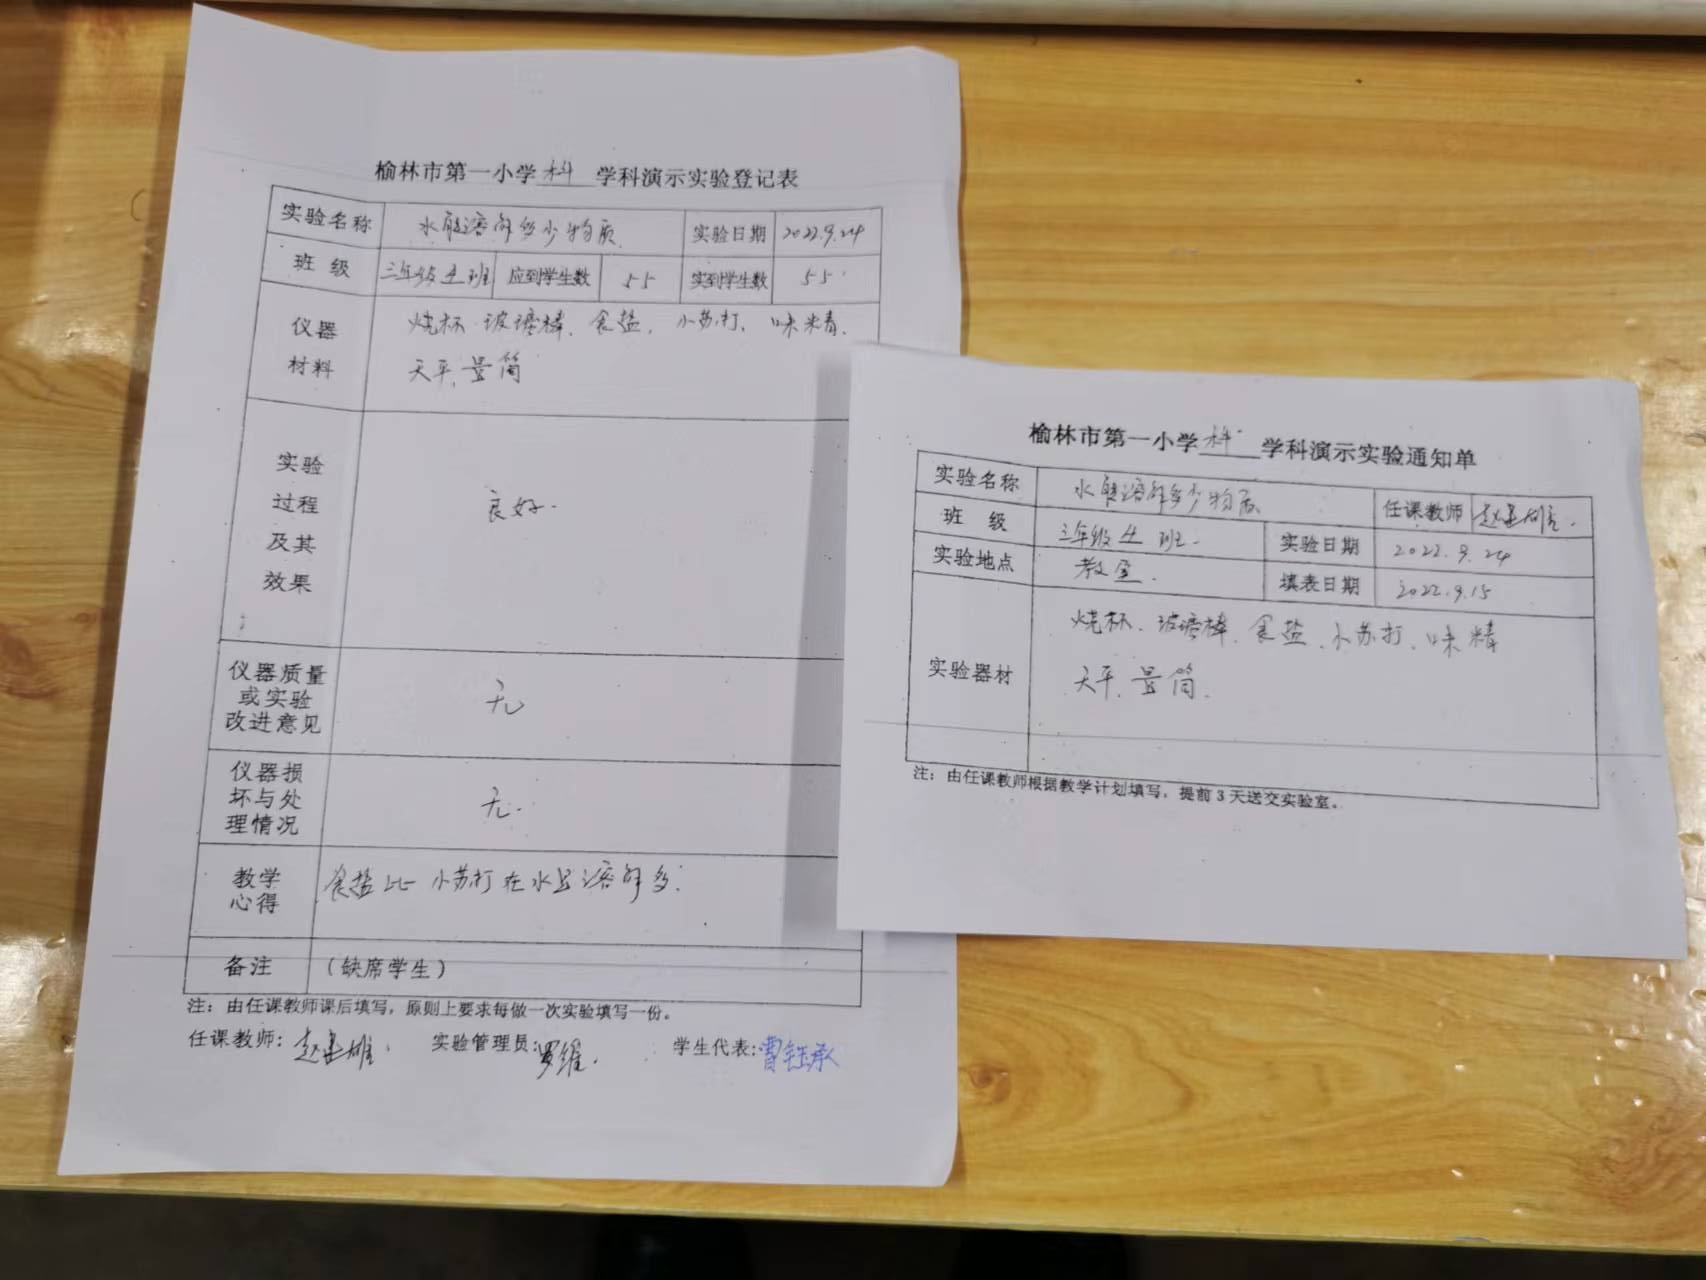 榆林市第一小学 科 学科演示实验登记表
实验名称 水能溶解多少物质 实验日期 2022.9.24
班 级 三年级 4 班 应到学生数 55 实到学生数 55
仪器 烧杯、玻璃棒、食盐、小苏打、味精、
材料 天平、量筒
实验
过程 良好.
及其
效果
仪器质量
或实验 无
改进意见
仪器损
坏与处 无.
理情况
教学 食盐比小苏打在水里溶解多.
心得
备注 (缺席学生)
注：由任课教师课后填写，原则上要求每做一次实验填写一份。
任课教师: 赵建雄. 实验管理员: 罗维. 学生代表: 曹钰承
榆林市第一小学 科 学科演示实验通知单
实验名称 水能溶解多少物质 任课教师 赵建雄.
班 级 三年级 4 班. 实验日期 2022.9.24
实验地点 教室. 填表日期 2022.9.15
实验器材 烧杯、玻璃棒、食盐、小苏打、味精
天平、量筒.
注：由任课教师根据教学计划填写，提前3天送交实验室。